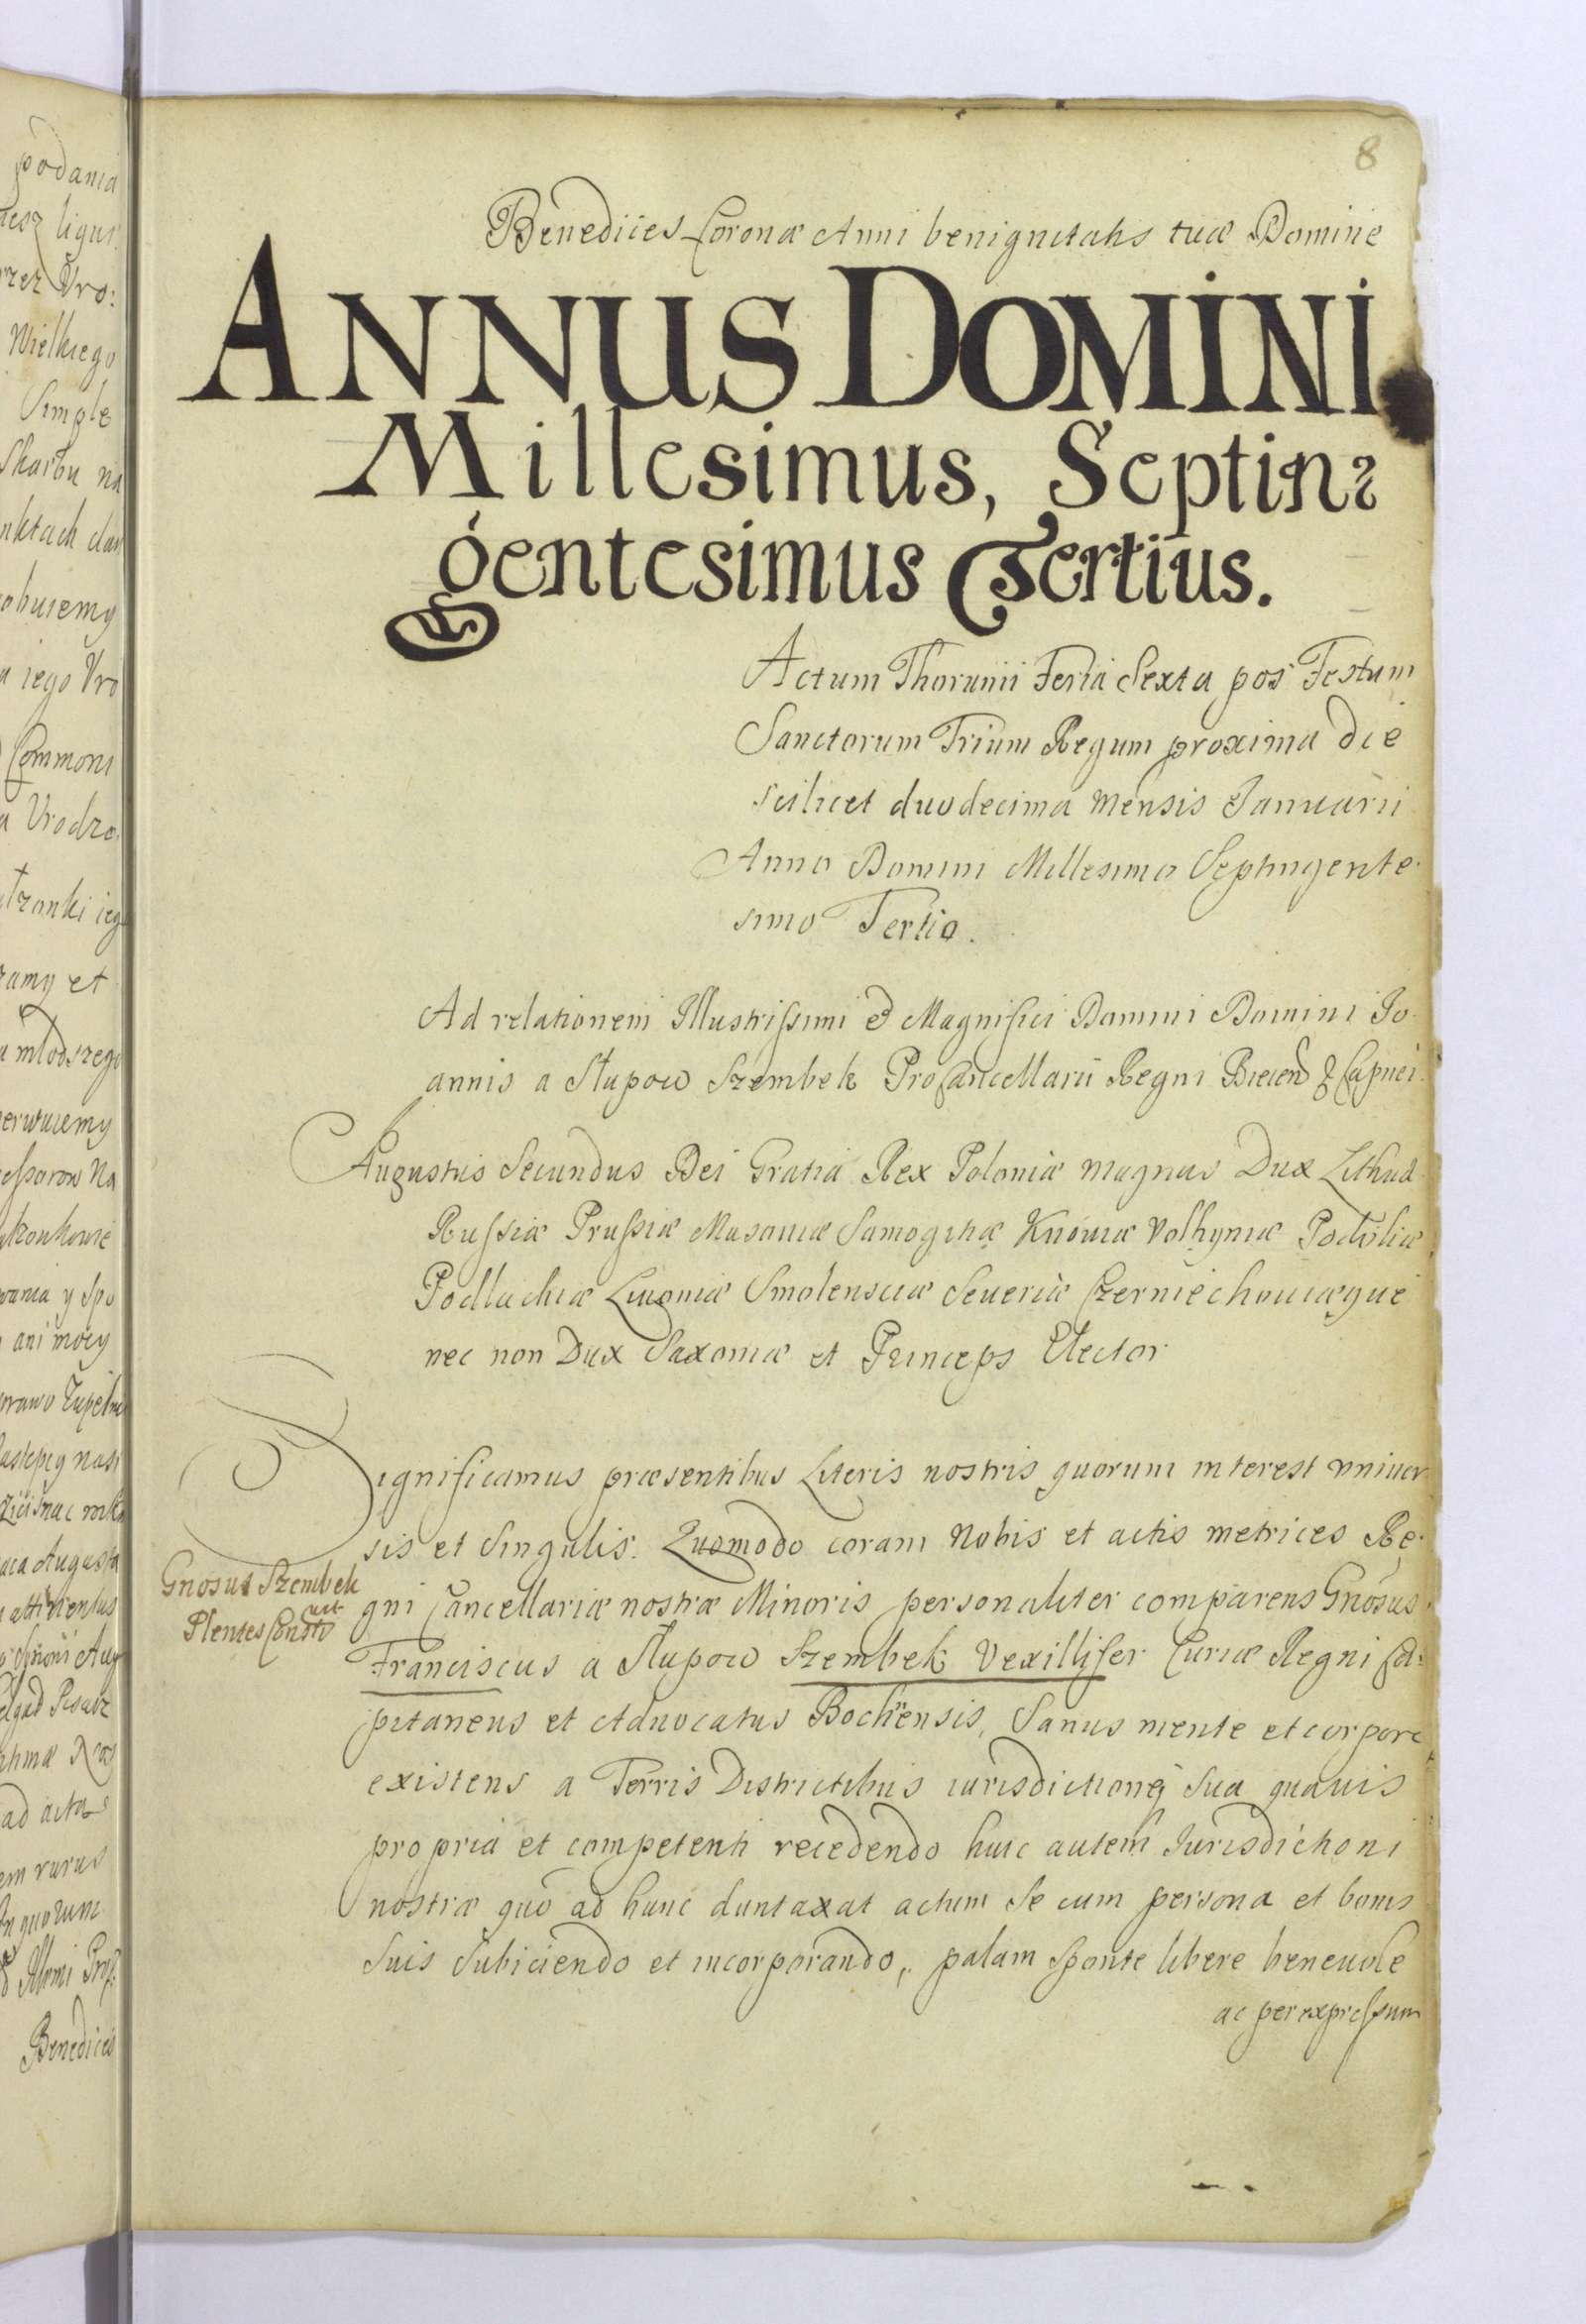 8
Benedices Coronæ Anni benignitatis tuæ Domine
ANNUS DOMINI
Millesimus, Septin=
gentesimus Tertius.
Actum Thorunii Feria Sexta pos Festum
Sanctorum Trium Regum proxima die
scilicet duodecima mensis Januarii
Anno Domini Millesimo Septingente
simo Tertio.
Ad relationem Illustrissimi et Magnifici Domini Domini Jo
annis a Słupow Szembek ProCancellarii Regni
Augustus Secundus Dei Gratia Rex Poloniæ magnus Dux Lithua
Russiæ Prussiæ Masoviæ Samogitiæ Kijoviæ Volhyniæ Podoliæ
Podlachiæ Livoniæ Smolensciæ Severiæ Czerniechoviæque
nec non Dux Saxoniæ et Princeps Elector
Significamus præsentibus Literis nostris quorum interest univer
sis et Singulis. Quomodo coram Nobis et actis metrices Re
gni Cancellariæ nostræ Minoris personaliter comparens Gnosus
Franciscus a Słupow Szembek Vexillifer Curiæ Regni Ca=
pitaneus et Advocatus Bochensis, Sanus mente et corpore
existens a Terris Districtibus iurisdictioneq sua quavis
propria et competenti recedendo huic autem Jurisdictioni
nostræ quo ad hunc duntaxat actum Se cum persona et bonis
Suis Subiiciendo et incorporando, palam Sponte libere benevole
ac per expressum
Gnosus Szembek
Plentes Constit
podania
ligus
Wielkiego
Simple
Skarbu na
a iego Vro
Commoni
a Vrodzo
et
mlodszego
ani mocy
Augusta
ad acta
quorum
Benedices